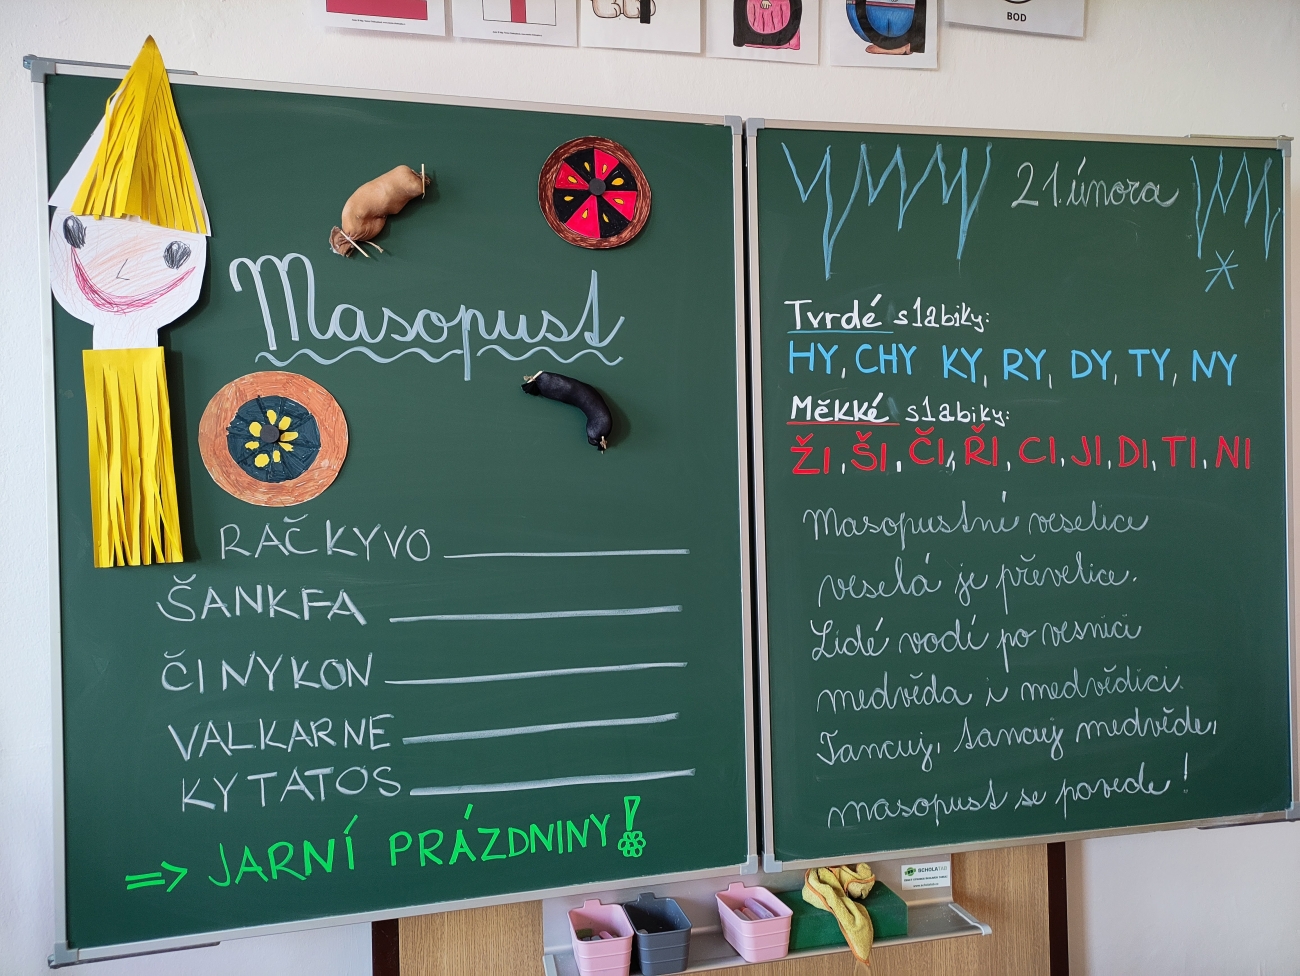 BOD
Masopust
RAČKYVO
ŠANKFA
ČINYKON
VALKARNE
KYTATOS
=> JARNÍ PRÁZDNINY!
21. února
Tvrdé slabiky:
HY, CHY KY, RY, DY, TY, NY
Měkké slabiky:
ŽI, ŠI, ČI, ŘI, CI, JI, DI, TI, NI
Masopustní veselice
veselá je převelice.
Lidé vodí po vesnici
medvěda i medvědici.
Tancuj, tancuj medvěde,
masopust se povede!
SCHOLATAB